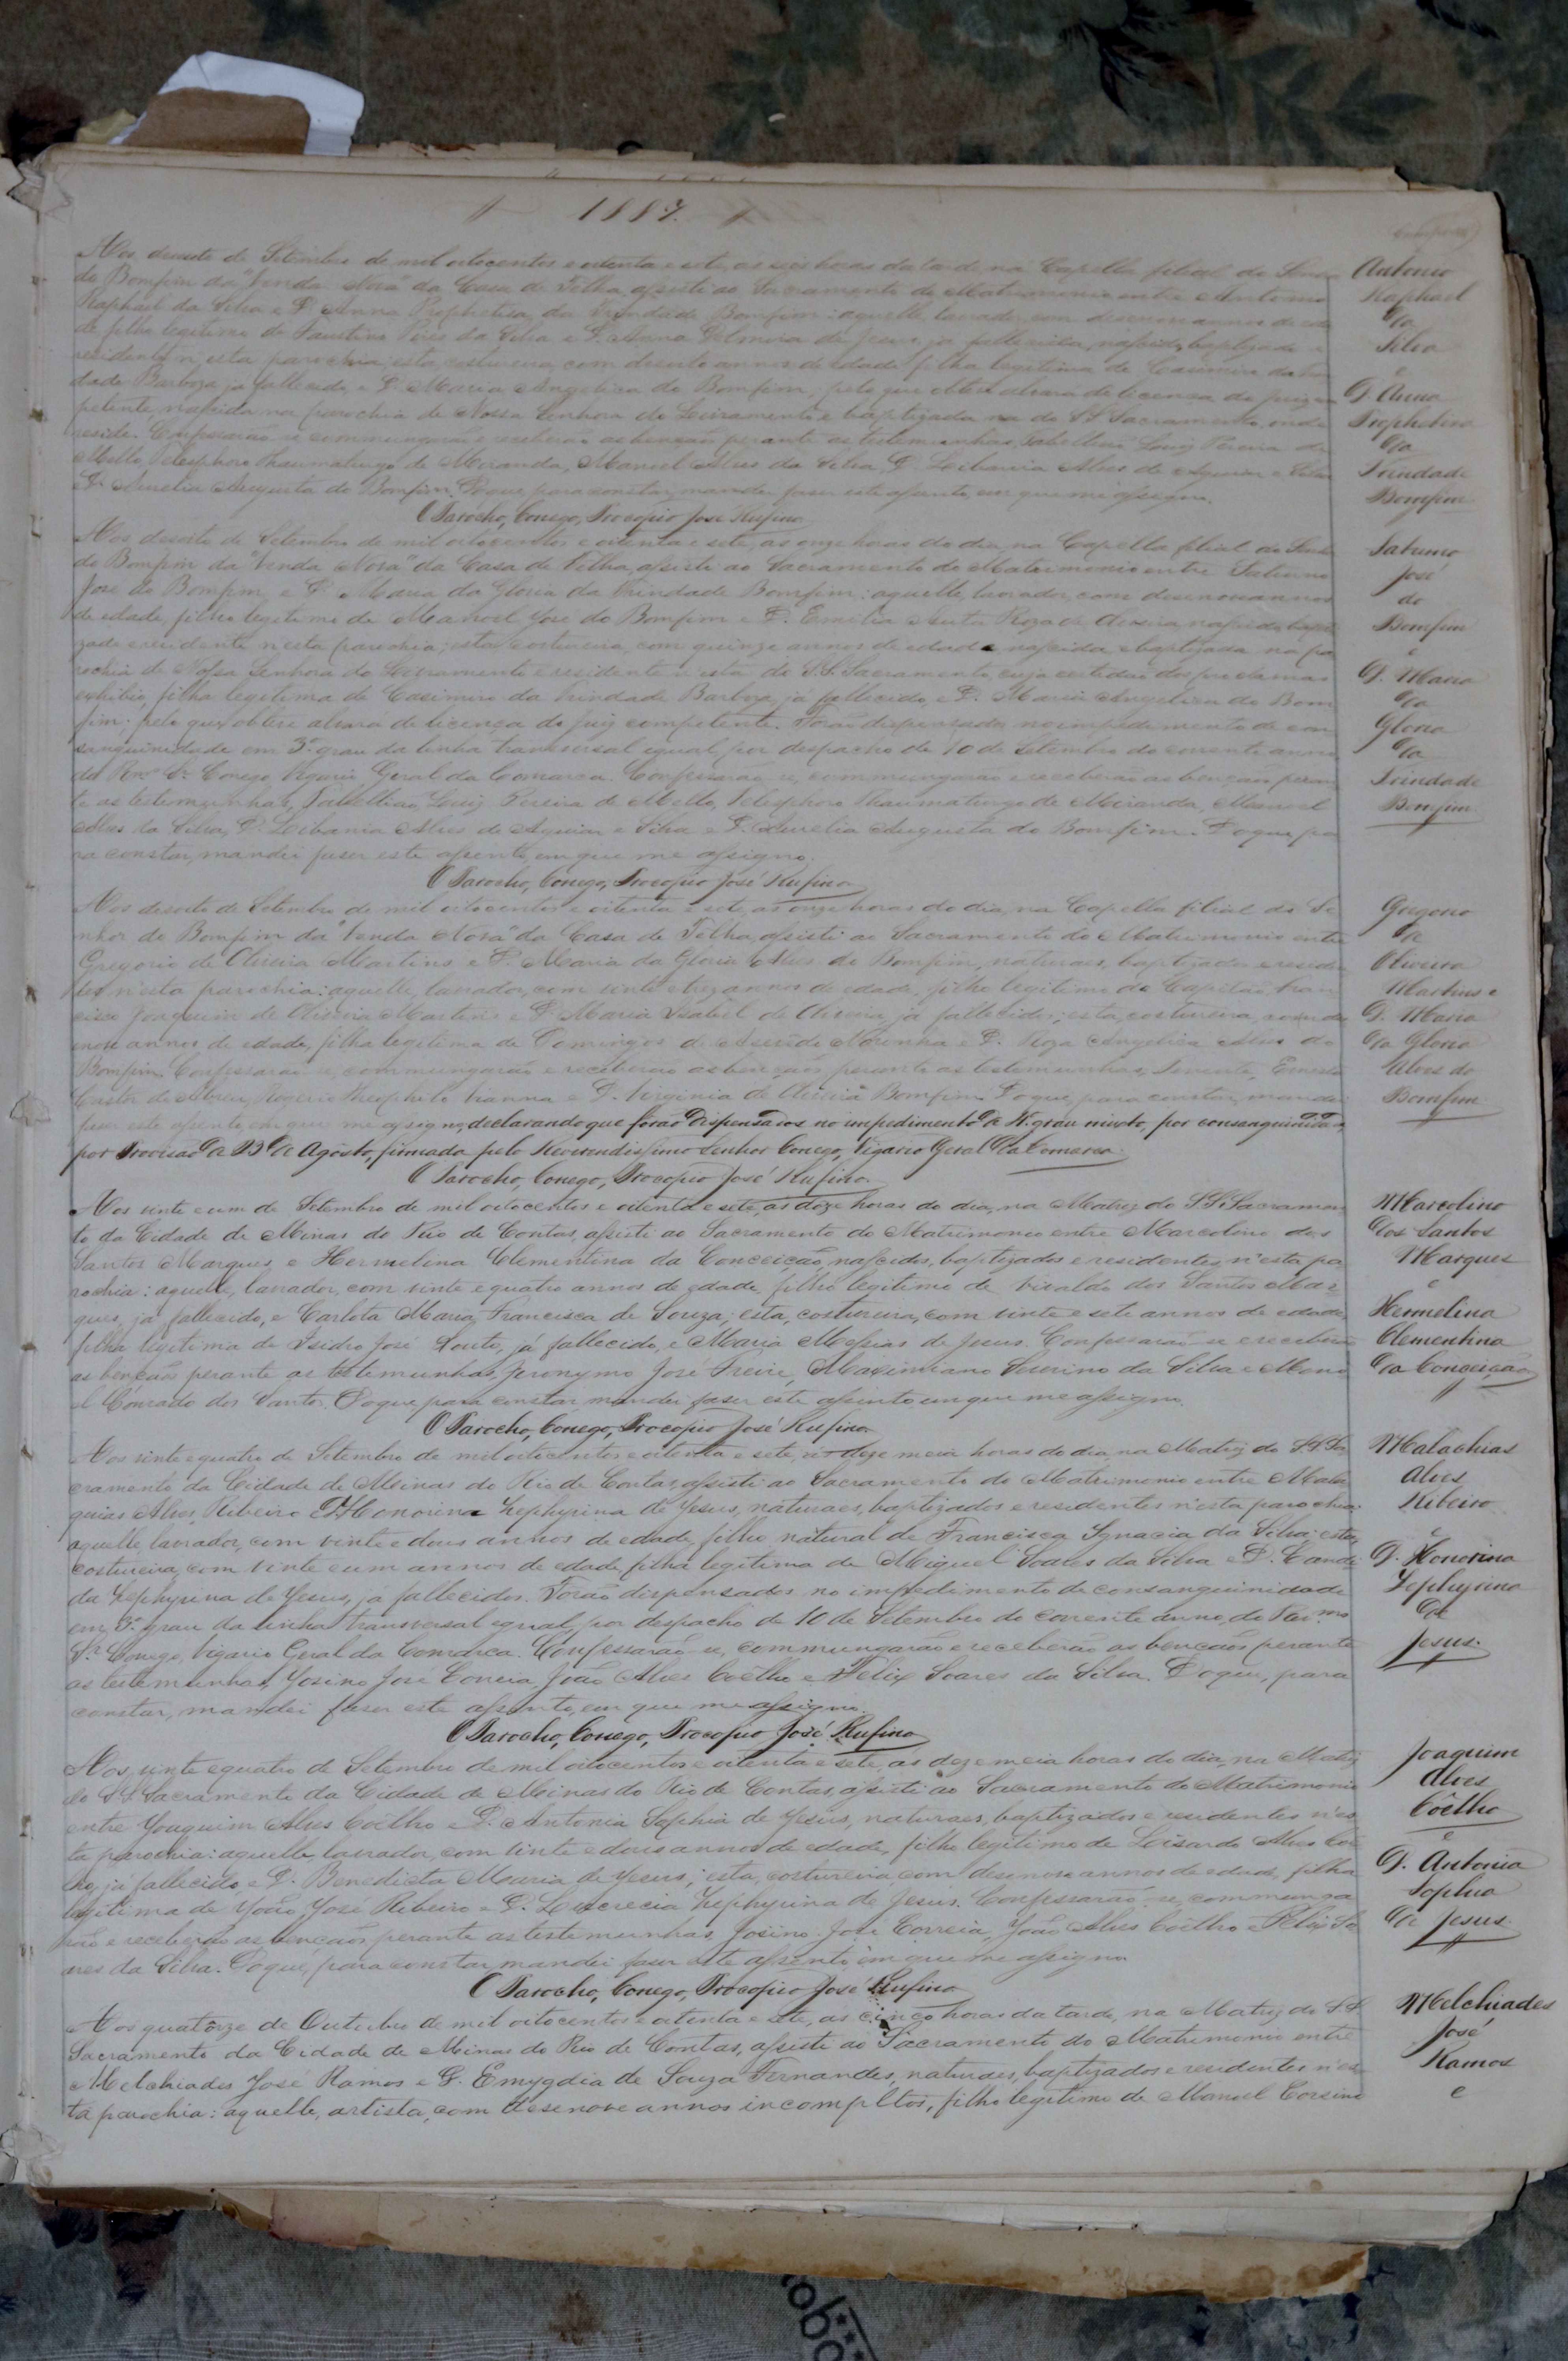 1887.
Aos desoito de Setembro de mil oitocentos e oitenta e sete, as seis horas da tarde na Capella filial do Senhor
do Bomfim da "Venda Nova" da Casa de Telha, assisti ao Sacramento do Matrimonio entre Antonio
Raphael da Silva e D. Anna Prophetisa da Trindade Bomfim: aquelle, lavrador, com desenove annos de eda
de, filho legitimo de Faustino Pires da Silva e D. Anna Delmira de Jesus, já fallecida, nascido, baptizado e
residente n'esta parochia; esta, costureira, com desoito annos de edade, filha legitima de Casimiro da Trin
dade Barboza, já fallecido e D. Maria Angelica do Bomfim, pelo que obteve alvará de licença do juiz com
petente, nascida na parochia de Nossa Senhora do Livramento e baptizada na do SS. Sacramento, onde
reside. Confessarão-se, commungarão e receberão as bençãos perante as testemunhas, Tabellião Luiz Pereira de
Mello, Telesphoro Thaumaturgo de Miranda, Manoel Alves da Silva, D. Libania Alves de Aguiar e Silva
D. Aurelia Augusta do Bomfim. Do que, para constar, mandei faser este assento, em que me assigno.
O Parocho, Conego, Procopio José Rufino
Aos desoito de Setembro de mil oitocentos e oitenta e sete, as onze horas do dia, na Capella filial do Senhor
do Bomfim da "Venda Nova" da Casa de Telha, assisti ao Sacramento do Matrimonio entre Saturno
José do Bomfim e D. Maria da Gloria da Trindade Bomfim: aquelle, lavrador, com desenove annos
de edade, filho legitimo de Manoel José do Bomfim e D. Emilia Roza de Oliveira, nascido, bapti
zado e residente nesta parochia; esta, costureira, com quinze annos de edade nascida e baptizada na pa
rochia de Nossa Senhora do Livramento e residente n'esta do SS. Sacramento cuja certidão dos proclamas
exhibio, filha legitima de Casimiro da Trindade Barboza, já fallecido, e D. Maria Angelica do Bom
fim; pelo que obteve alvará de licença do juiz competente. Forão dispensados no impedimento de con
sanguinidade em 3º grau da linha transversal egual, por despacho de 10 de Setembro do corrente anno
do Rmo. Sr. Conego Vigario Geral da Comarca. Confessarão-se, commungarão e receberão as bençãos peran
te as testemunhas, Tabellião Luiz Pereira de Mello, Telesphoro Thaumaturgo de Miranda, Manoel
Alves da Silva, D. Libania Alves de Aguiar e Silva e D. Aurelia Augusta do Bomfim. Do que, pa
ra constar, mandei faser este assento, em que me assigno.
O Parocho, Conego, Procopio José Rufino
Aos desoito de Setembro de mil oitocentos e oitenta e sete, as onze horas do dia, na Capella filial do Se
nhor do Bomfim da "Venda Nova" da Casa de Telha, assisti ao Sacramento do Matrimonio entre
Gregorio de Oliveira Martins e D. Maria da Gloria Alves do Bomfim, naturaes, baptizados e residen
tes n'esta parochia: aquelle, lavrador, com vinte e trez annos de edade, filho legitimo do Capitão Fran
cisco Joaquim de Oliveira Martins e D. Maria Isabel de Oliveira, já fallecidos; esta, costureira, com de
enove annos de edade, filha legitima de Domingos de Noronha e D. Roza Angelica Alves do
Bomfim. Confessarão-se, commungarão e receberão as bençãos perante as testemunhas, Tenente, Ernesto
Castor de Abreu, Rogerio Theophilo Vianna e D. Virginia de Oliveira Bomfim. Do que, para constar, mandei
faser este assento, em que me assigno, declarando que forão dispensados no impedimento de 4º grau mixto, por consanguinidade,
por Provisão de 23 de Agosto, firmada pelo Reverendissimo Senhor Conego, Vigario Geral da Comarca.
O Parocho, Conego, Procopio José Rufino.
Aos vinte e um de Setembro de mil oitocentos e oitenta e sete, as doze horas do dia, na Matriz do SS. Sacramen
to da Cidade de Minas do Rio de Contas, assisti ao Sacramento do Matrimonio entre Marcolino dos
Santos Marques e Hermelina Clementina da Conceição, nascidos, baptizados e residentes n'esta pa
rochia: aquelle, lavrador, com vinte e quatro annos de edade, filho legitimo de Vivaldo dos Santos Mar
ques, já fallecido, e Carlota Maria Francisca de Souza; esta, costureira, com vinte e sete annos de edade,
filha legitima de Isidro José Souto, já fallecido, e Maria Messias de Jesus. Confessarão-se e receberão
as bençãos perante as testemunhas, Jeronymo José Freire, Maximiano Severino da Silva e Mano
el Conrado dos Santos. Do que, para constar, mandei faser este assento em que me assigno.
O Parocho, Conego, Procopio José Rufino.
Aos vinte e quatro de Setembro de mil oitocentos e oitenta e sete, as doze meia horas do dia, na Matriz do SS. Sa
cramento da Cidade de Minas do Rio de Contas, assisti ao Sacramento do Matrimonio entre Mala
quias Alves Ribeiro e D. Honorina Zephyrina de Jesus, naturaes, baptizados e residentes n'esta parochia:
aquelle, lavrador, com vinte e dous annos de edade, filho natural de Francisca Ignacia da Silva; esta,
costureira, com vinte e um annos de edade, filha legitima de Miguel Soares da Silva e D. Candi
da Zephyrina de Jesus, já fallecidos. Forão dispensados no impedimento de consanguinidade
em 3º grau da linha transversal egual, por despacho de 10 de Setembro do corrente anno, do Rmo.
Sr. Conego, Vigario Geral da Comarca. Confessarão-se, commungarão e receberão as bençãos perante
as testemunhas, Josino José Correia, João Alves Coêlho e Felix Soares da Silva. Do que, para
constar, mandei faser este assento, em que me assigno.
O Parocho, Conego, Procopio José Rufino
Aos vinte e quatro de Setembro de mil oitocentos e oitenta e sete, as doze meia horas do dia, na Matriz
do SS. Sacramento da Cidade de Minas do Rio de Contas, assisti ao Sacramento do Matrimonio
entre Joaquim Alves Coêlho e D. Antonia Sophia de Jesus, naturaes, baptizados e residentes n'es
ta parochia: aquelle, lavrador, com vinte e dous annos de edade, filho legitimo de Alves Coê
lho, já fallecido e D. Benedicta Maria de Jesus; esta, costureira, com desenove annos de edade, filha
legitima de João José Ribeiro e D. Lucrecia Zephyrina de Jesus. Confessarão-se, communga
rão e receberão as bençãos perante as testemunhas, Josino José Correia, João Alves Coêlho e Felix So
ares da Silva. Do que, para constar, mandei faser este assento, em que me assigno
O Parocho, Conego, Procopio José Rufino
Aos quatorze de Outubro de mil oitocentos e oitenta e sete, as cinco horas da tarde, na Matriz do SS.
Sacramento da Cidade de Minas do Rio de Contas, assisti ao Sacramento do Matrimonio entre
Melchiades José Ramos e D. Emygdia de Souza Fernandes, naturaes, baptizados e residentes n'es
ta parochia: aquelle, artista, com desenove annos incompltos, filho legitimo de Manoel Corsino
Antonio
Raphael
da
Silva
e
D. Anna
Prophetisa
da
Trindade
Bomfim
Saturno
José
do
Bomfim
e
D. Maria
da
Gloria
da
Trindade
Bomfim
Gregorio
de
Oliveira
Martins e
D. Maria
da Gloria
Alves do
Bomfim
Marcolino
dos Santos
Marques
e
Hermelina
Clementina
da Conceição
Malachias
Alves
Ribeiro
e
D. Honorina
Zephyrina
de
Jesus.
Joaquim
Alves
Coêlho
e
D. Antonia
Sophia
de Jesus
Melchiades
José
Ramos
e